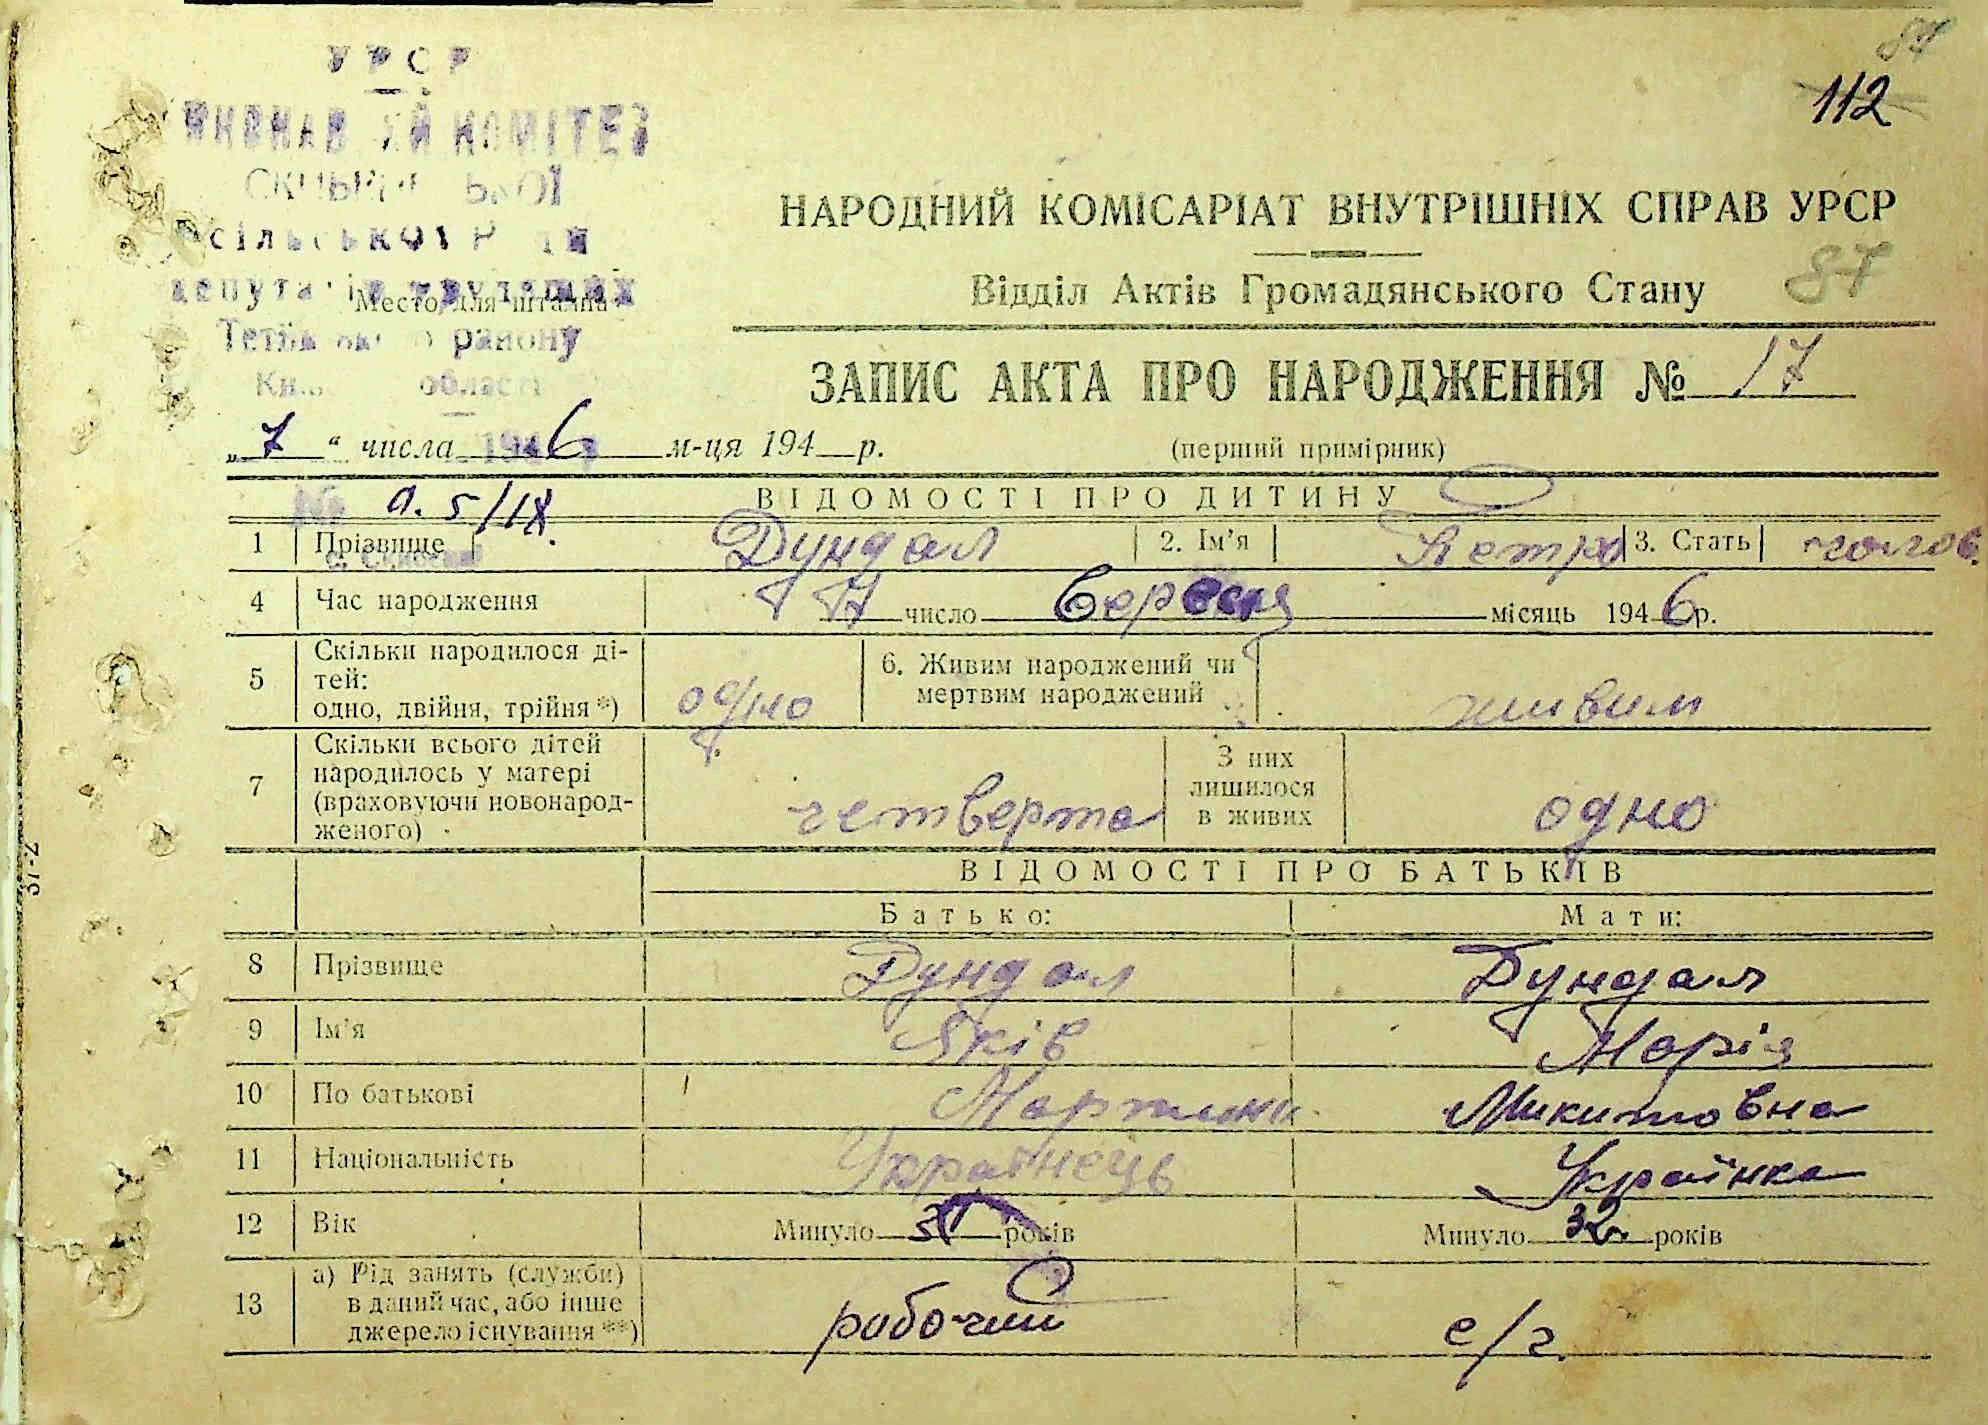 УРСР
87
112
СКИБИН ЬКОЇ
НАРОДНИЙ КОМІСАРІАТ ВНУТРІШНІХ СПРАВ УРСР
Відділ Актів Громадянського Стану 87
Место для штампа
району
області
ЗАПИС АКТА ПРО НАРОДЖЕННЯ № 17
„ 7 “ числа 194 6 м-ця 194 р. (перший примірник)
№ а. 5/IX.
ВІДОМОСТІ ПРО ДИТИНУ
1 Прізвище Дундал 2. Ім'я Петро 3. Стать чолов.
4 Час народження 17 число вересня місяць 194 6 р.
5 Скільки народилося ді-
тей:
одно, двійня, трійня *) одно 6. Живим народжений чи
мертвим народжений живим
7 Скільки всього дітей
народилось у матері
(враховуючи новонарод-
женого) четверта З них
лишилося
в живих одно
ВІДОМОСТІ ПРО БАТЬКІВ
Батько: Мати:
8 Прізвище Дундал Дундал
9 Ім'я Яків Марія
10 По батькові Мартинн. Микитовна
11 Національність Українець Українка
12 Вік Минуло років Минуло 32 років
13 а) Рід занять (служби)
в даний час, або інше
джерело існування **) робочий с/г.
37-2